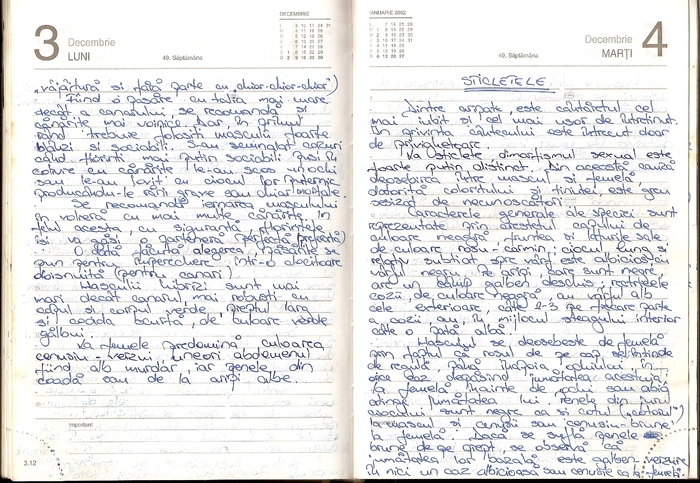 3
Decembrie
LUNI
49. Săptămâna
DECEMBRIE
„văpăitură și fără parte cu „chior-chior-chior")
Fiind o pasăre cu talia mai mare
decât a canarului, se recomandă și
canărițe mai voinice. Dar în primul
rând trebuie folosiți masculi foarte
blânzi și sociabili. S-au semnalat cazuri
când florinți mai puțin sociabili puși în
colivie cu canărițe le-au scos un ochi
sau le-au lovit cu ciocul lor puternic
producându-le răni grave sau chiar mortale.
Se recomandă iernarea masculului
în volieră cu mai multe canărițe, în
felul acesta, cu siguranță florintele
își va găsi o parteneră (perfectă) preferată
O dată făcută alegerea, păsările se
pun pentru împerechere într-o clocitoare
obișnuită (pentru canari)
Masculii hibrizi sunt mai
mari decât canarul, mai robuști cu
capul și corpul verde, pieptul larg
și coada scurtă, de culoare verde
gălbui.
La femele predomină culoarea
cenușiu-verzui, uneori abdomenul
fiind alb murdar, iar penele din
coadă sau de la aripi albe.
Important
3.12
IANUARIE 2002
49. Săptămâna
Decembrie
MARȚI
4
STICLETELE
Dintre acestea, este cântărețul cel
mai iubit și cel mai ușor de întreținut.
În privința cântecului este întrecut doar
de privighetoare.
La sticlete, dimorfismul sexual este
foarte puțin distinct. Din această cauză
deosebirea între mascul și femelă
datorită coloritului și ținutei este greu
sesizat de necunoscători.
Caracterele generale ale speciei sunt
reprezentate prin creștetul capului de
culoare neagră, fruntea și laturile sale
de culoare roșu-carmin, ciocul lung și
relativ subțiat spre vârf este albicios cu
vârful negru. Pe aripi, care sunt negre,
are un câmp galben deschis, rectricele
cozii de culoare neagră, au vârful alb
cele exterioare, câte 2-3 pe fiecare parte
a cozii au în mijlocul steagului interior
câte o pată albă.
Masculul se deosebește de femelă
prin faptul că roșul de pe cap se întinde
de regulă, până înapoia ochiului, în
orice caz depășind jumătatea acestuia,
la femelă înainte de ochi sau abia
atinge jumătatea lui. Penele din jurul
ciocului sunt negre ca și cotul („cotarul")
la mascul și cenușii sau cenușiu-brune
la femelă. Dacă se suflă penele
brune de pe piept, se observă că
jumătatea lor bazală este galben verzuie
în nici un caz albicioasă sau cenușie ca la femelă.